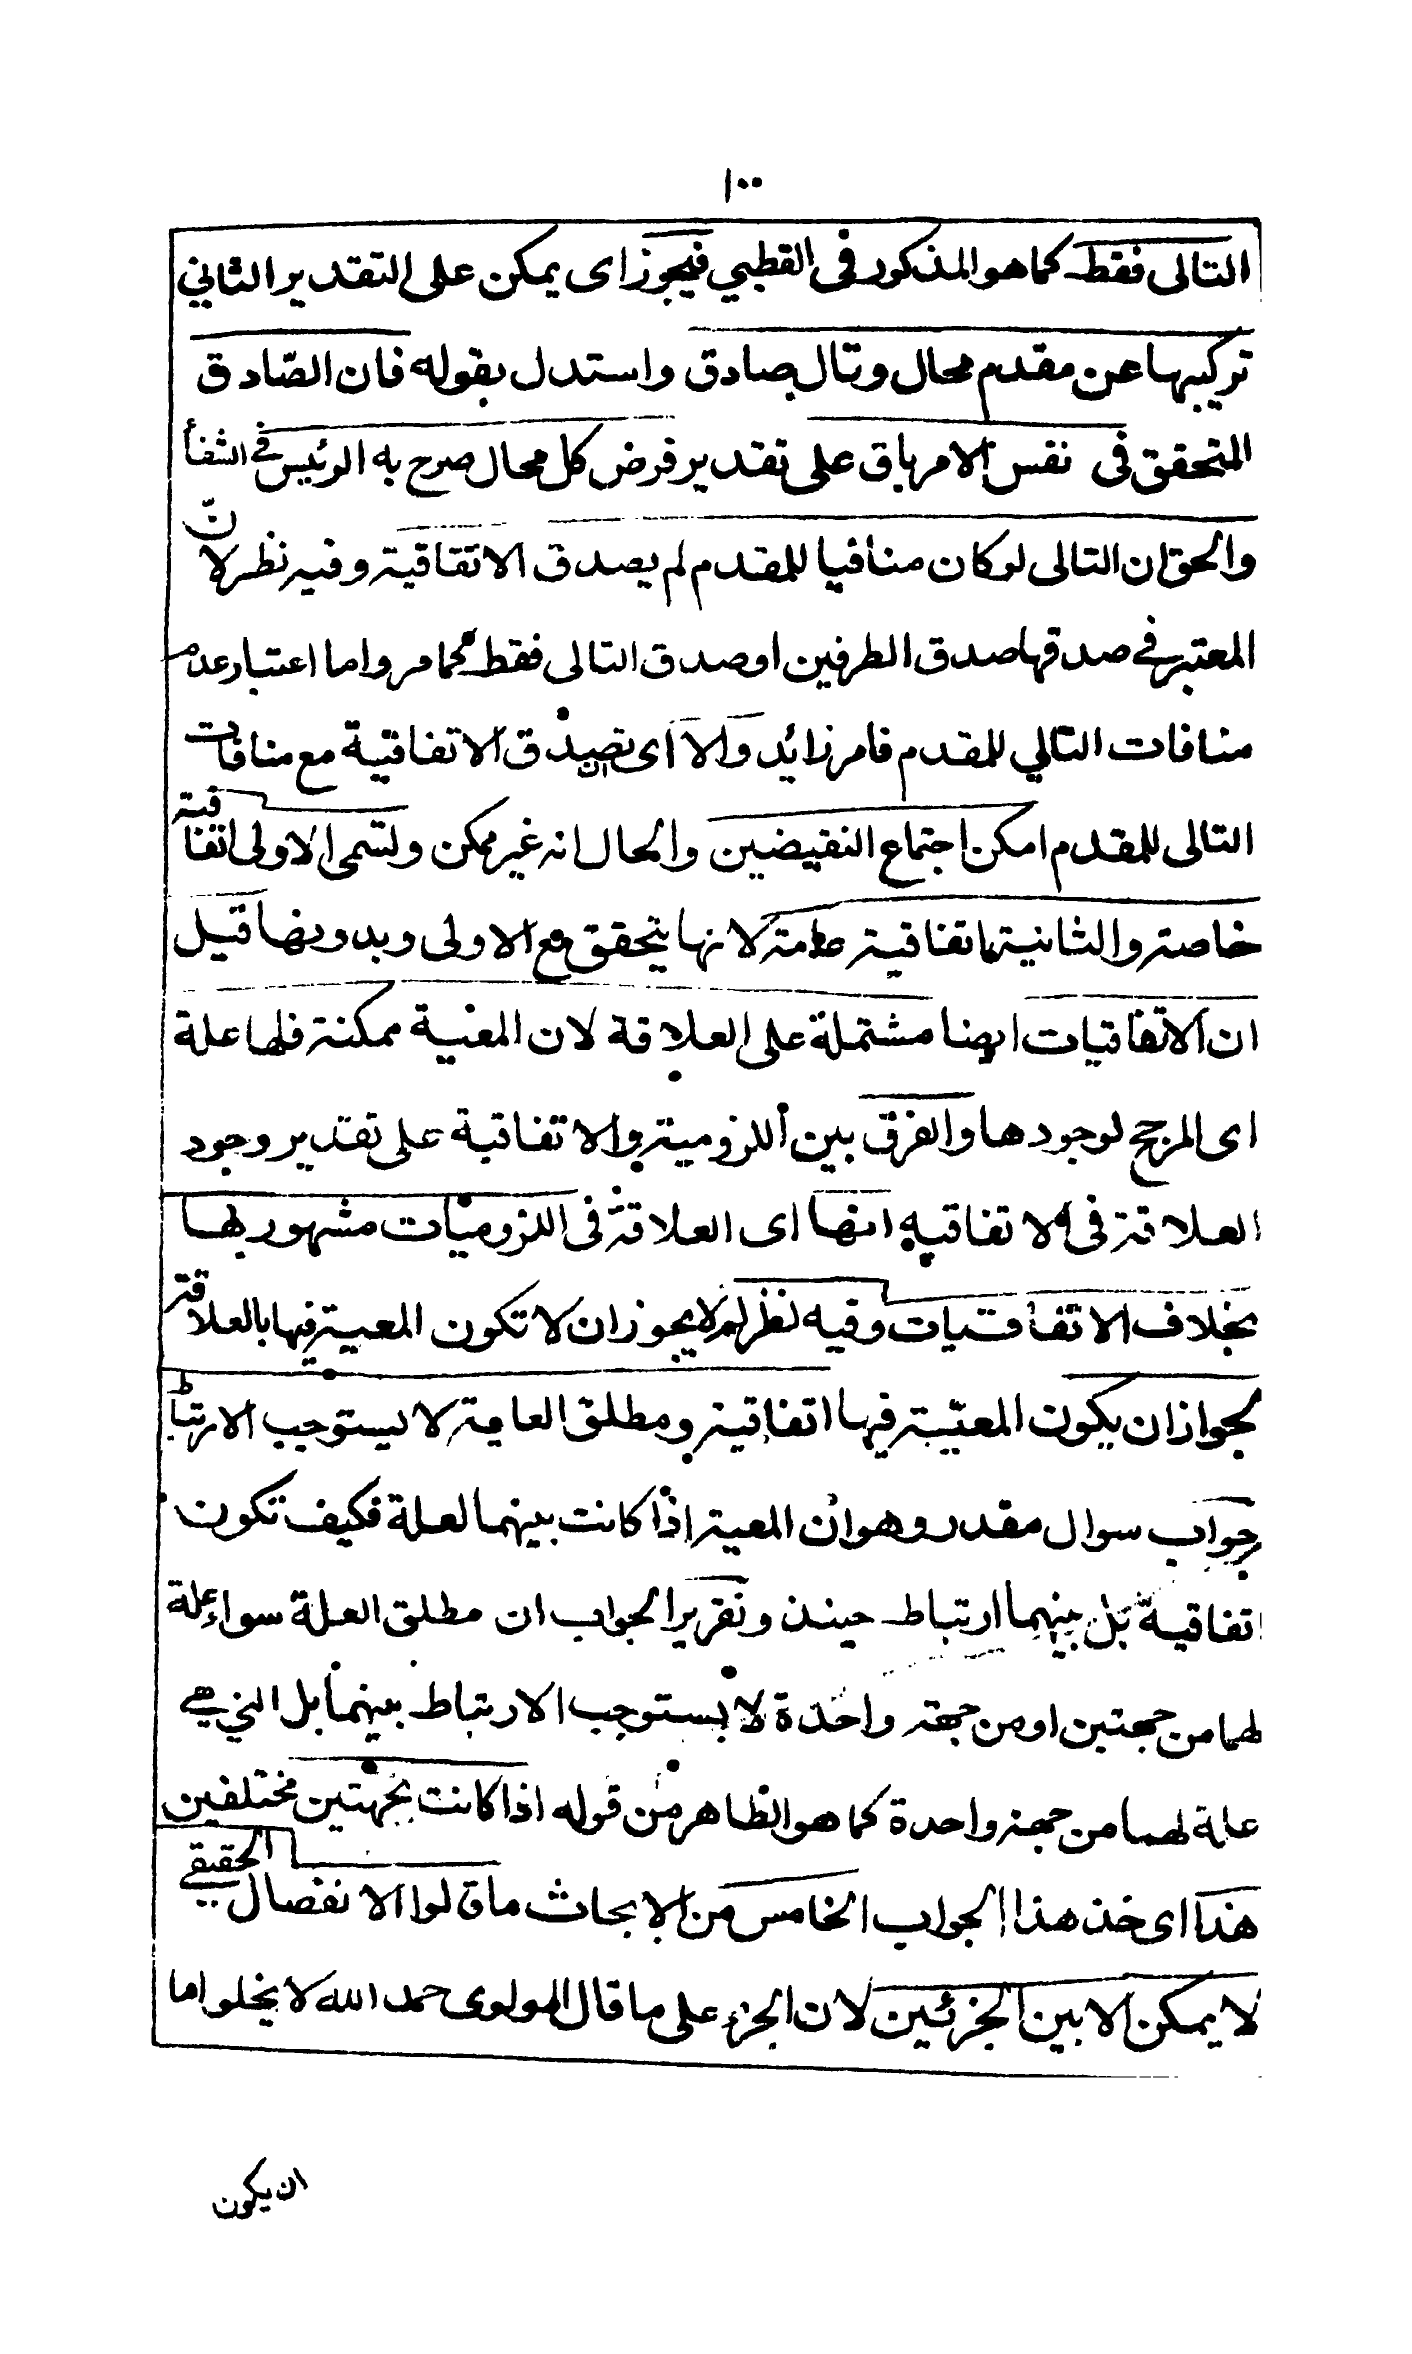 ١٠٠
التالى فقط كما هو المذكور فى القطبي فيجوز اى يمكن على التقدير الثاني
تركيبها عن مقدم محال وتال صادق واستدل بقوله فان الصّادق
المتحقق فى نفس الامر باق على تقدير فرض كل محال صرح به الرئيس في الشفأ
والحق ان التالى لو كان منافيا للمقدم لم يصدق الاتفاقية وفيه نظر لانّ
المعتبر في صدقها صدق الطرفين او صدق التالى فقط كما مر واما اعتبار عدم
منافات التالي للمقدم فامر زائد والا اى ان تصدق الاتفاقية مع منافات
التالى للمقدم امكن اجتماع النقيضين والحال انه غير ممكن ولتسمى الاولى اتفاقية
خاصة والثانية اتفاقية عامة لانها يتحقق مع الاولى وبدونها قيل
ان الاتفاقيات ايضا مشتملة على العلاقة لان المعية ممكنة فلها علة
اى المرجح لوجودها والفرق بين اللزومية والاتفاقية على تقدير وجود
العلاقة فى الاتفاقيه انها اى العلاقة فى اللزوميات مشهور لها
بخلاف الاتفاقيات وفيه نظر لم لا يجوز ان لا تكون المعية فيها بالعلاقة
لجواز ان يكون المعيّة فيها اتفاقية ومطلق العامية لا يستوجب الارتباط
جواب سوال مقدر وهو ان المعية اذا كانت بينهما لعلة فكيف تكون
اتفاقية بل بينهما ارتباط حينئذ وتقرير الجواب ان مطلق العلة سواء علة
لهما من جهتين او من جهة واحدة لا يستوجب الارتباط بينهما بل التي هي
علة لهما من جهة واحدة كما هو الظاهر من قوله اذا كانت بجهتين مختلفين
هذا اى خذ هذا الجواب الخامس من الابحاث ما قالوا الانفصال الحقيقي
لا يمكن الا بين الجزئين لان الجزء على ما قال المولوى حمد الله لا يخلو اما
ان يكون